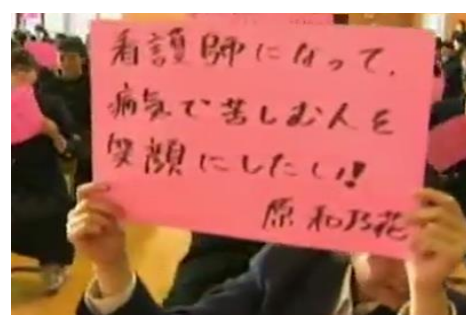 看護師になって、
病気で苦しむ人を
笑顔にしたい!!
原 和乃花